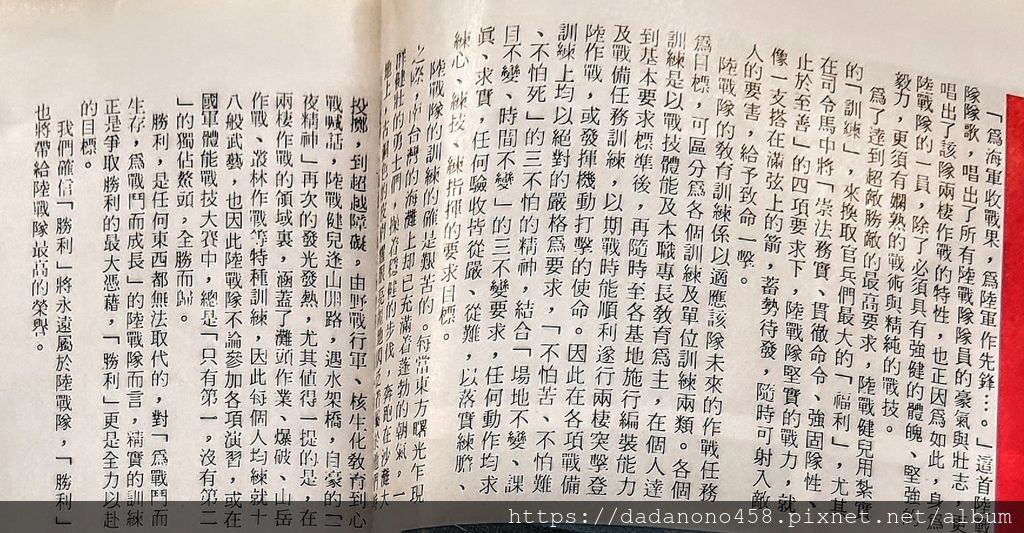 「為海軍收戰果，為陸軍作先鋒…。」這首陸戰
隊隊歌，唱出了所有陸戰隊隊員的豪氣與壯志，更
唱出了該隊兩棲作戰的特性，也正因為如此，身為
陸戰隊的一員，除了必須具有強健的體魄、堅強的
毅力，更須有嫻熟的戰術與精純的戰技。
為了達到超敵勝敵的最高要求，陸戰健兒用紮實
的「訓練」，來換取官兵們最大的「福利」，尤其
在司令馬中將「崇法務實、貫徹命令、強固隊性、
止於至善」的四項要求下，陸戰隊堅實的戰力，就
像一支搭在滿弦上的箭，蓄勢待發，隨時可射入敵
人的要害，給予致命一擊。
陸戰隊的教育訓練係以適應該隊未來的作戰任務
為目標，可區分為各個訓練及單位訓練兩類。各個
訓練是以戰技體能及本職專長教育為主，在個人達
到基本要求標準後，再隨時至各基地施行編裝能力
及戰備任務訓練，以期戰時能順利遂行兩棲突擊登
陸作戰，或發揮機動打擊的使命。因此在各項戰備
訓練上均以絕對的嚴格為要求，「不怕苦、不怕難
、不怕死」的三不怕的精神，結合「場地不變、課
目不變、時間不變」的三不變要求，任何動作均求
真、求實，任何驗收皆從嚴、從難，以落實練膽、
練心、練技、練指揮的要求目標。
陸戰隊的訓練的確是艱苦的。每當東方曙光乍現
之際，中台灣的海灘上却已充滿着蓬勃的朝氣，一
群健壯的勇士們，踩着穩健的步伐，奔跑在沙灘大
地上，古銅色的
投擲，到超越障礙，由野戰行軍、核生化教育到心
戰喊話，陸戰健兒逢山開路，遇水架橋，自豪的「
夜精神」再次的發光發熱，尤其值得一提的是，在
兩棲作戰的領域裏，涵蓋了灘頭作業、爆破、山岳
作戰、叢林作戰等特種訓練，因此每個人均練就十
八般武藝，也因此陸戰隊不論參加各項演習，或在
國軍體能戰技大賽中，總是「只有第一，沒有第二
」的獨佔鰲頭，全勝而歸。
勝利，是任何東西都無法取代的，對「為戰鬥而
生存，為戰鬥而成長」的陸戰隊而言，精實的訓練
正是爭取勝利的最大憑藉，「勝利」更是全力以赴
的目標。
我們確信「勝利」將永遠屬於陸戰隊，「勝利」
也將帶給陸戰隊最高的榮譽。
https://dadanono458.pixnet.net/album